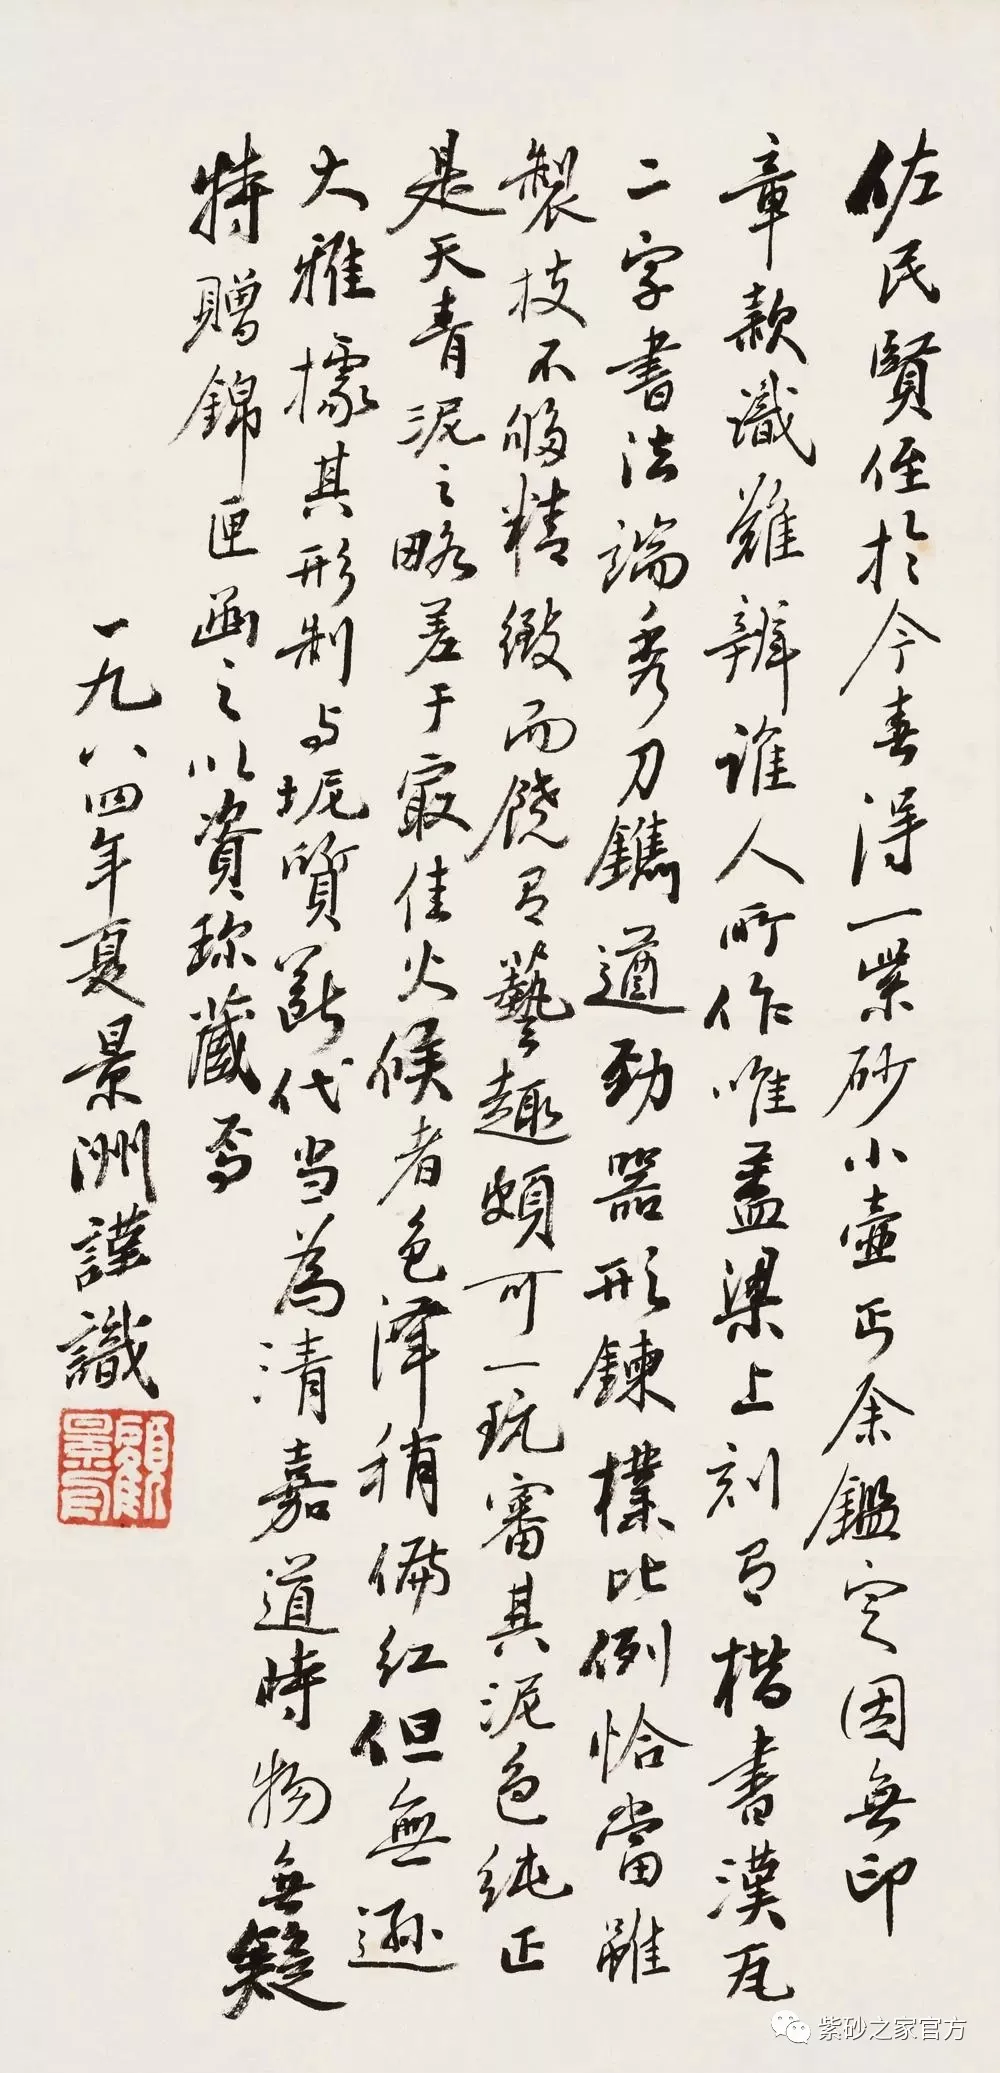 佐民賢侄於今春得一紫砂小壷丐余鑑定因無印
章款識難辨誰人所作唯蓋梁上刻有楷書漢瓦
二字書法端秀刀鐫遒勁器形鍊樸比例恰當雖
製技不够精緻而饒有藝趣頗可一玩審其泥色純正
是天青泥之略差于最佳火候者色澤稍偏紅但無遜
大雅據其形制与坭質斷代当為清嘉道時物無疑
特贈錦匣函之以資珍藏焉
一九八四年夏景洲謹識
顧景舟
紫砂之家官方